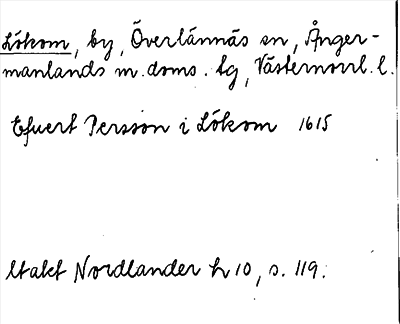 Lökom, by, Överlännäs sn, Ånger-
manlands m. doms. tg, Västernorrl. l.
Efuert Persson i Lökom 1615
Utakt Nordlander h 10, s. 119.